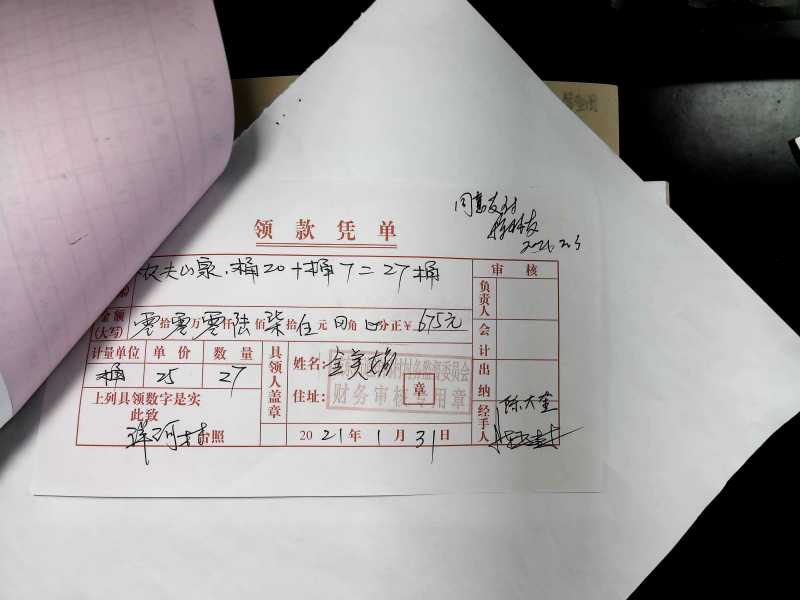 同意支付
2021.2.3
领款凭单
农夫山泉.桶20+桶7=27桶
审核
负责人
金额
(大写)
零拾零万零仟陆佰柒拾伍元 角 分正￥675元
会计
计量单位 单价 数量
桶 25 27
具领人盖章
姓名:
住址:
村务监督委员会
财务审核专用章
章
出纳
上列具领数字是实
此致
洋河村台照
2021年1月31日
经手人
陈大奎